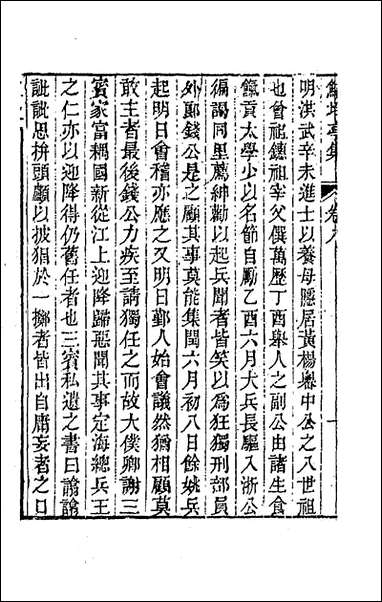 鮚埼亭集　卷九
明洪武辛未進士以養母隱居黃楊嶴中公之八世祖
也曾祖鏓祖宰父僎萬歷丁酉舉人之副公由諸生食
餼貢太學少以名節自勵乙酉六月大兵長驅入浙公
徧謁同里薦紳勸以起兵聞者皆笑以爲狂獨刑部員
外郞錢公是之顧其事莫能集閏六月初八日餘姚兵
起明日會稽亦應之又明日鄞人始會議然猶相顧莫
敢主者最後錢公力疾至請獨任之而故太僕卿謝三
賓家富耦國新從江上迎降歸惡聞其事定海總兵王
之仁亦以迎降得仍舊任者也三賓私遺之書曰潝潝
訿訿思拚頭顱以披猖於一擲者皆出自庸妄者之口